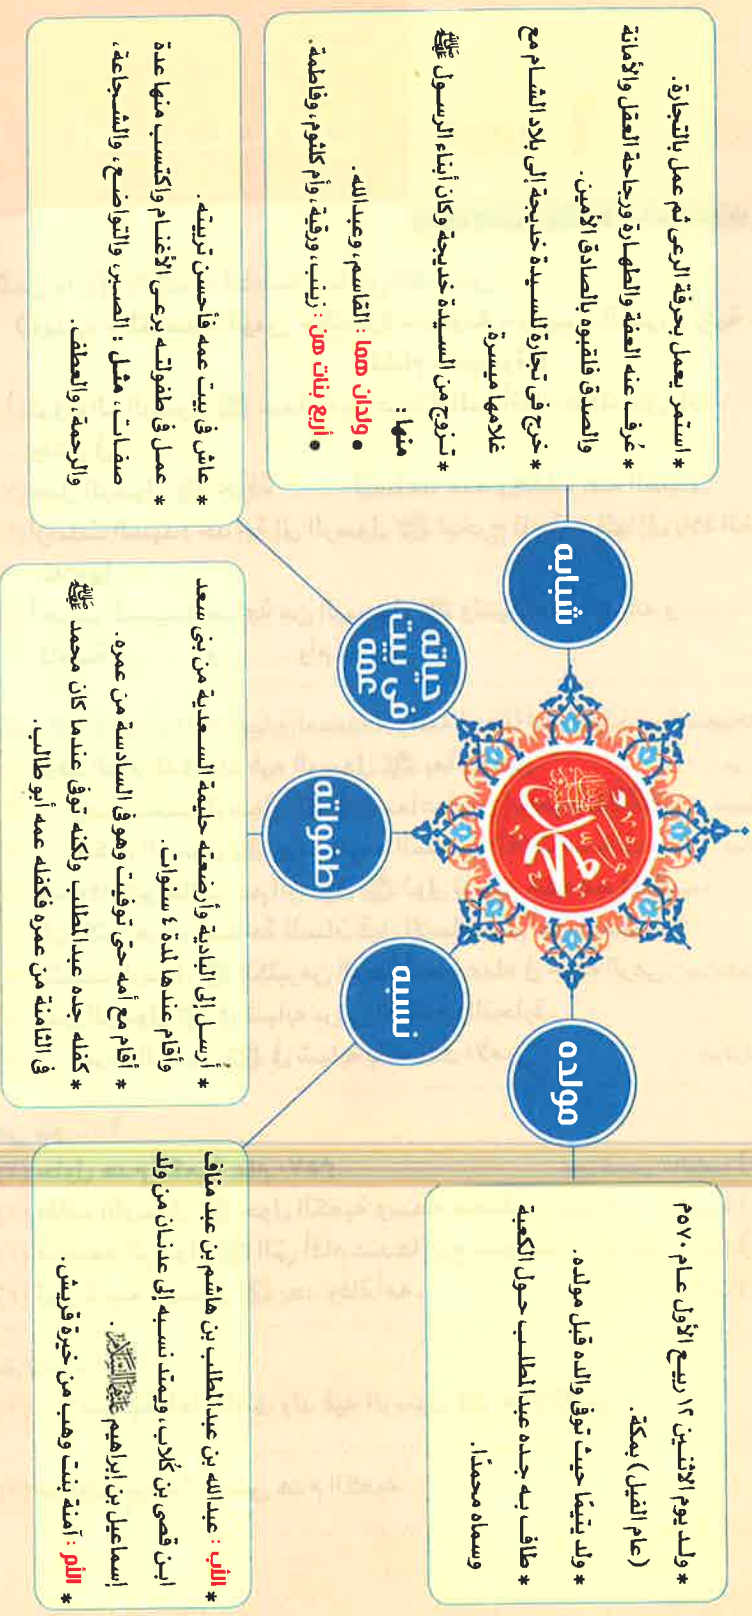 محمد
مولده
* ولد يوم الاثنين ١٢ ربيع الأول عام ٥٧٠م
(عام الفيل) بمكة.
* ولد يتيمًا حيث توفى والده قبل مولده.
* طاف به جده عبدالمطلب حول الكعبة
وسماه محمدًا.
نسبه
* الأب : عبدالله بن عبدالمطلب بن هاشم بن عبد مناف
ابن قصى بن كلاب، ويمتد نسبه إلى عدنان من ولد
إسماعيل بن إبراهيم عليهما السلام.
* الأم : آمنة بنت وهب من خيرة قريش.
طفولته
* أرسل إلى البادية وأرضعته حليمة السعدية من بنى سعد
وأقام عندها لمدة ٤ سنوات.
* أقام مع أمه حتى توفيت وهو فى السادسة من عمره.
* كفله جده عبدالمطلب ولكنه توفى عندما كان محمد ﷺ
فى الثامنة من عمره فكفله عمه أبو طالب.
حياته
فى بيت
عمه
* عاش فى بيت عمه فأحسن تربيته.
* عمل فى طفولته برعى الأغنام واكتسب منها عدة
صفات، مثل : الصبر، والتواضع، والشجاعة،
والرحمة والعطف.
شبابه
* استمر يعمل بحرفة الرعى ثم عمل بالتجارة.
* عُرف عنه العفة والطهارة ورجاحة العقل والأمانة
والصدق فلقبوه بالصادق الأمين.
* خرج فى تجارة للسيدة خديجة إلى بلاد الشام مع
غلامها ميسرة.
* تزوج من السيدة خديجة وكان أبناء الرسول ﷺ
منها :
● ولدان هما : القاسم، وعبدالله.
● أربع بنات هن : زينب، ورقية، وأم كلثوم، وفاطمة.